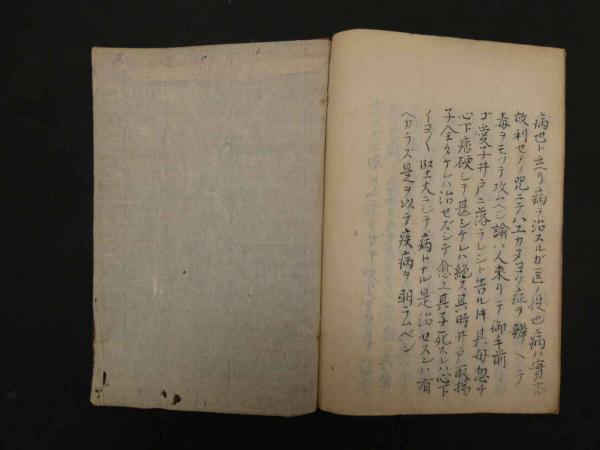 病也ト云ヘリ病ヲ治スルガ医ノ役也病ハ實
故利セアノ呪ニテハユカヌヨリ症ヲ辨ヘテ
毒ヲモツテ攻ムベシ諭ハ人來リテ御手前
ゴ愛子井戸ニ落ラレシト告ルキ其母忽チ
心下痞硬シテ甚シケレハ絶ス其時井戸ヨリ
子全タケレハ治セズシテ愈ユ其子死スレハ心下
イヨ〱堅大ニシテ病トナル是治セスンハ有
ヘカラズ是ヲ以テ疾病ヲ明ラムベシ